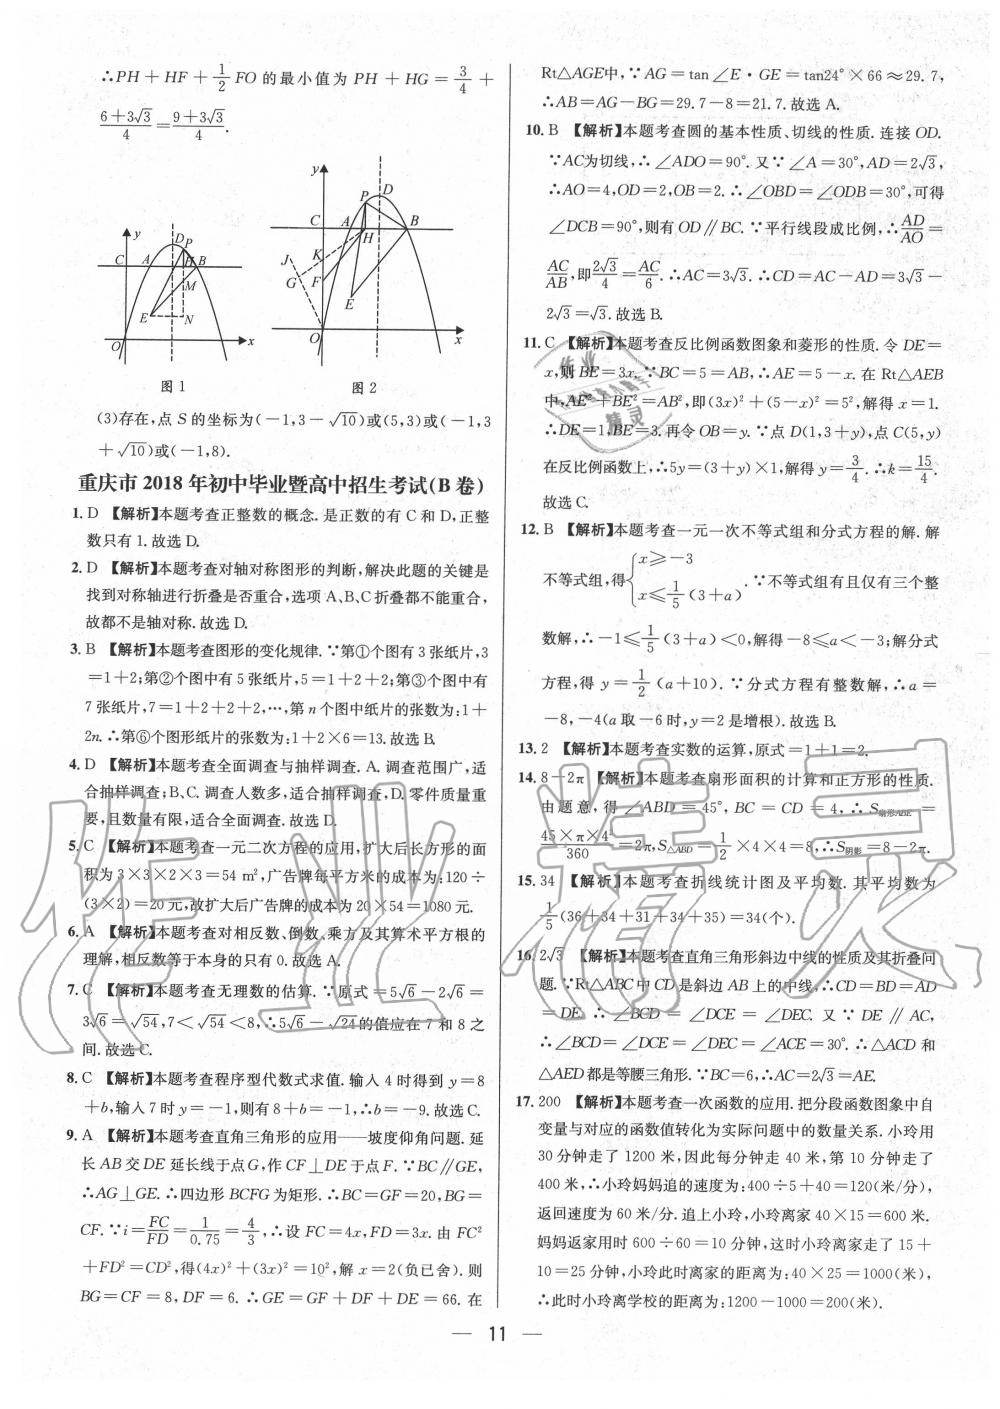 ∴PH+HF+1/2FO的最小值为PH+HG=3/4+
(6+3√3)/4=(9+3√3)/4.
y
D
P
C
A
H
B
M
E
N
O
x
图1
y
D
P
C
A
B
K
H
J
G
F
E
O
x
图2
(3)存在,点S的坐标为(-1,3-√10)或(5,3)或(-1,3
+√10)或(-1,8).
重庆市2018年初中毕业暨高中招生考试(B卷)
1. D 【解析】本题考查正整数的概念.是正数的有C和D,正整
数只有1.故选D.
2. D 【解析】本题考查对轴对称图形的判断,解决此题的关键是
找到对称轴进行折叠是否重合,选项A、B、C折叠都不能重合,
故都不是轴对称.故选D.
3. B 【解析】本题考查图形的变化规律.∵第①个图有3张纸片,3
=1+2;第②个图中有5张纸片,5=1+2+2;第③个图中有
7张纸片,7=1+2+2+2,…,第n个图中纸片的张数为:1+
2n.∴第⑥个图形纸片的张数为:1+2×6=13.故选B.
4. D 【解析】本题考查全面调查与抽样调查.A.调查范围广,适
合抽样调查;B、C.调查人数多,适合抽样调查,D.零件质量重
要,且数量有限,适合全面调查.故选D.
5. C 【解析】本题考查一元二次方程的应用,扩大后长方形的面
积为3×3×2×3=54 m²,广告牌每平方米的成本为:120÷
(3×2)=20元,故扩大后广告牌的成本为20×54=1080元.
6. A 【解析】本题考查对相反数、倒数、乘方及其算术平方根的
理解,相反数等于本身的只有0.故选A.
7. C 【解析】本题考查无理数的估算.∵原式=5√6-2√6=
3√6=√54,7<√54<8,∴5√6-√24的值应在7和8之
间.故选C.
8. C 【解析】本题考查程序型代数式求值.输入4时得到y=8
+b,输入7时y=-1,则有8+b=-1,∴b=-9.故选C.
9. A 【解析】本题考查直角三角形的应用——坡度仰角问题.延
长AB交DE延长线于点G,作CF⊥DE于点F.∵BC∥GE,
∴AG⊥GE.∴四边形BCFG为矩形.∴BC=GF=20,BG=
CF.∵i=FC/FD=1/0.75=4/3,∴设FC=4x,FD=3x.由FC²
+FD²=CD²,得(4x)²+(3x)²=10²,解x=2(负已舍).则
BG=CF=8,DF=6.∴GE=GF+DF+DE=66.在
Rt△AGE中,∵AG=tan∠E·GE=tan24°×66≈29.7,
∴AB=AG-BG=29.7-8=21.7.故选A.
10. B 【解析】本题考查圆的基本性质、切线的性质.连接OD.
∵AC为切线,∴∠ADO=90°.又∵∠A=30°,AD=2√3,
∴AO=4,OD=2,OB=2.∴∠OBD=∠ODB=30°,可得
∠DCB=90°,则有OD∥BC.∵平行线段成比例,∴AD/AO=
AC/AB,即2√3/4=AC/6.∴AC=3√3.∴CD=AC-AD=3√3-
2√3=√3.故选B.
11. C 【解析】本题考查反比例函数图象和菱形的性质.令DE=
x,则BE=3x.∵BC=5=AB,∴AE=5-x.在Rt△AEB
中,AE²+BE²=AB²,即(3x)²+(5-x)²=5²,解得x=1.
∴DE=1,BE=3.再令OB=y.∵点D(1,3+y),点C(5,y)
在反比例函数上,∴5y=(3+y)×1,解得y=3/4.∴k=15/4.
故选C.
12. B 【解析】本题考查一元一次不等式组和分式方程的解.解
不等式组,得{x≥-3
x≤1/5(3+a).∵不等式组有且仅有三个整
数解,∴-1≤1/5(3+a)<0,解得-8≤a<-3;解分式
方程,得y=1/2(a+10).∵分式方程有整数解,∴a=
-8,-4(a取-6时,y=2是增根).故选B.
13. 2 【解析】本题考查实数的运算,原式=1+1=2.
14. 8-2π 【解析】本题考查扇形面积的计算和正方形的性质.
由题意,得∠ABD=45°,BC=CD=4,∴S扇形ABE=
45×π×4²/360=2π,S△ABD=1/2×4×4=8,∴S阴影=8-2π.
15. 34 【解析】本题考查折线统计图及平均数.其平均数为
1/5(36+34+31+34+35)=34(个).
16. 2√3 【解析】本题考查直角三角形斜边中线的性质及其折叠问
题.∵Rt△ABC中CD是斜边AB上的中线,∴CD=BD=AD
=DE.∴∠BCD=∠DCE=∠DEC.又∵DE∥AC,
∴∠BCD=∠DCE=∠DEC=∠ACE=30°.∴△ACD和
△AED都是等腰三角形.∵BC=6,∴AC=2√3=AE.
17. 200 【解析】本题考查一次函数的应用.把分段函数图象中自
变量与对应的函数值转化为实际问题中的数量关系.小玲用
30分钟走了1200米,因此每分钟走40米,第10分钟走了
400米,∴小玲妈妈追的速度为:400÷5+40=120(米/分),
返回速度为60米/分.追上小玲,小玲离家40×15=600米.
妈妈返家用时600÷60=10分钟,这时小玲离家走了15+
10=25分钟,小玲此时离家的距离为:40×25=1000(米),
∴此时小玲离学校的距离为:1200-1000=200(米).
— 11 —
作业精灵